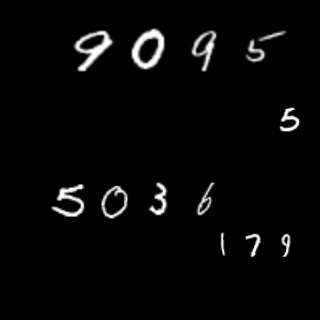 9095
5
5036
179